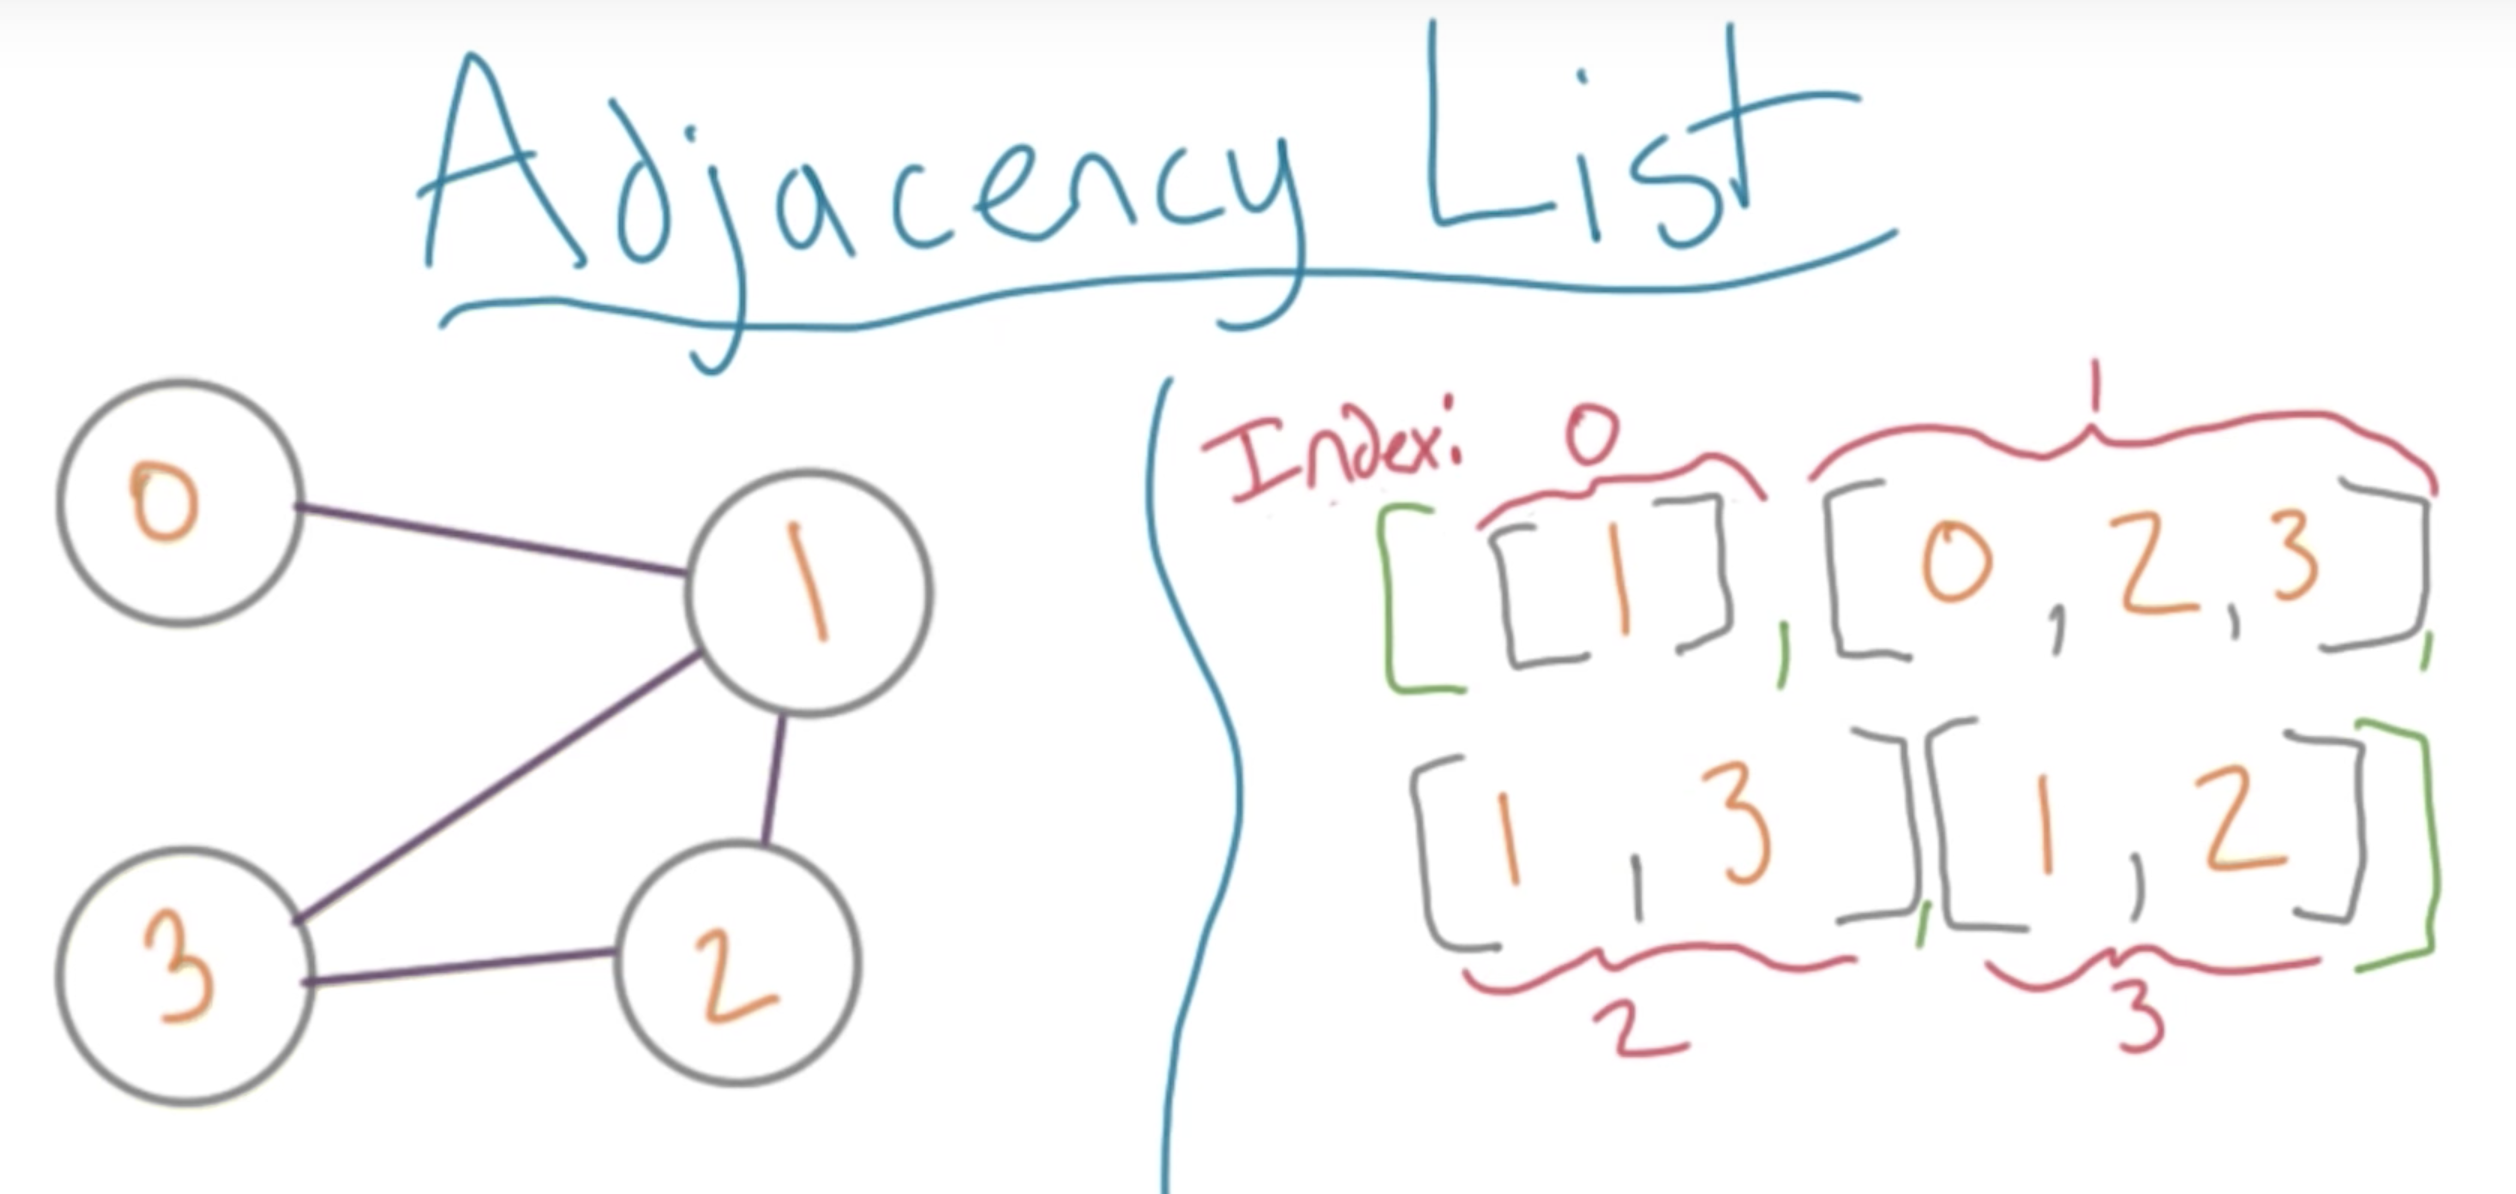 Adjacency List
0
1
3
2
Index: 0 1
[ [ 1 ] , [ 0 , 2 , 3 ] ,
[ 1 , 3 ] , [ 1 , 2 ] ]
2 3